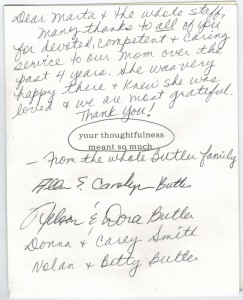 Dear Marta & the whole staff,
Many thanks to all of you
for devoted, competent & caring
service to our mom over the
past 4 years. She was very
happy there & knew she was
loved & we are most grateful.
Thank You!
your thoughtfulness
meant so much
— from the whole Butler family
Allen & Carolyn Butler
Nelson & Dora Butler
Donna & Carey Smith
Nolan & Betty Butler